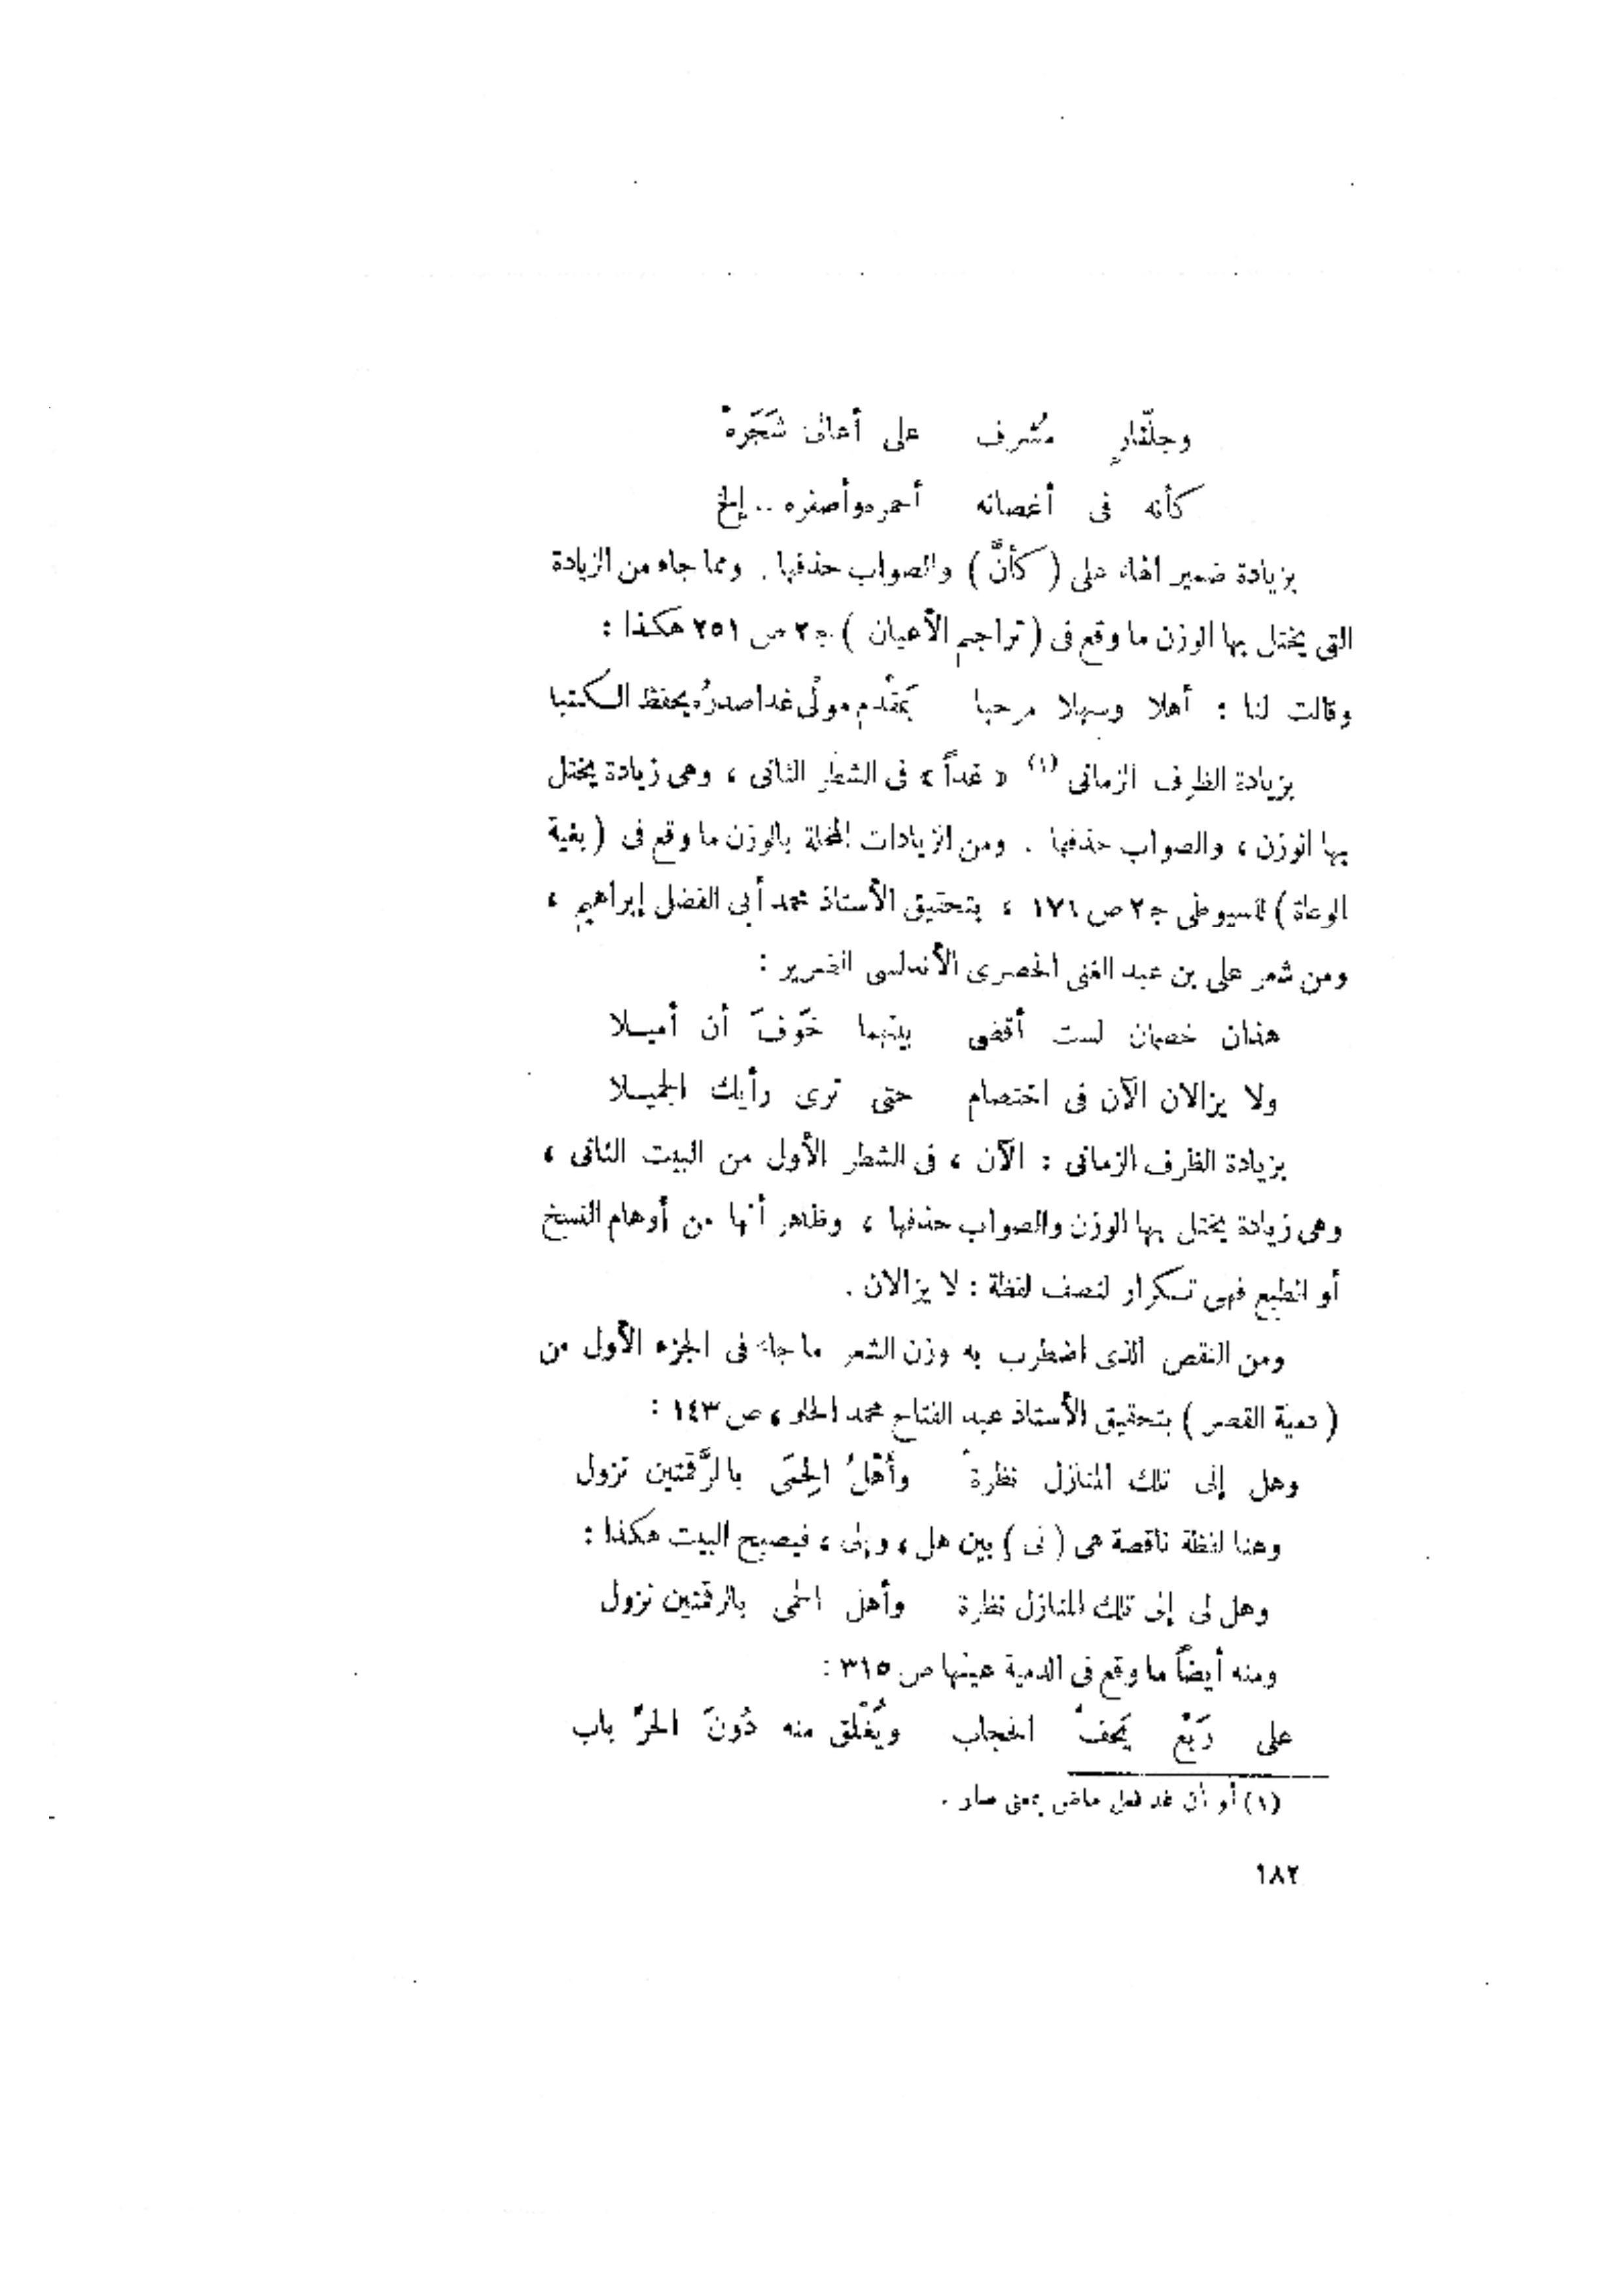 وجلّنارٍ مُشرف على أعالى شَجَره
كأنه فى أغصانه أحمره وأصفره .. إلخ
بزيادة ضمير الهاء على ( كأنَّ ) والصواب حذفها . ومما جاء من الزيادة
التى يختل بها الوزن ما وقع فى ( تراجم الأعيان ) ج٢ ص ٢٥١ هكذا :
وقالت لنا : أهلا وسهلا مرحبا بمَقْدم مولًى غدا صدرُه يحفظ الكتبا
بزيادة الظرف الزمانى (١) « غداً » فى الشطر الثانى ، وهى زيادة يختل
بها الوزن ، والصواب حذفها . ومن الزيادات المخلة بالوزن ما وقع فى ( بغية
الوعاة ) للسيوطى ج٢ ص ١٧٦ ، بتحقيق الأستاذ محمد أبى الفضل إبراهيم ،
ومن شعر على بن عبد الغنى الحصرى الأندلسى الضرير :
هذان خصمان لست أقضى بينهما خَوفَ أن أميلا
ولا يزالان الآن فى اختصام حتى ترى رأيك الجميلا
بزيادة الظرف الزمانى : الآن ، فى الشطر الأول من البيت الثانى ،
وهى زيادة يختل بها الوزن والصواب حذفها ، وظاهر أنها من أوهام النسخ
أو الطبع فهى تكرار لنصف لفظة : لا يزالان .
ومن النقص الذى اضطرب به وزن الشعر ما جاء فى الجزء الأول من
( دمية القصر ) بتحقيق الأستاذ عبد الفتاح محمد الحلو ، ص ١٤٣ :
وهل إلى تلك المنازل نظرة وأهْلُ الحِمَى بالرَّقمتين نزول
وهنا لفظة ناقصة هى ( لى ) بين هل ، وإلى ، فيصبح البيت هكذا :
وهل لى إلى تلك المنازل نظرة وأهل الحمى بالرقمتين نزول
ومنه أيضاً ما وقع فى الدمية عينها ص ٣١٥ :
على رَبْع يَحف الحجاب ويُغْلق منه دُونَ الحرّ باب
(١) أو أن غد فعل ماض بمعنى صار .
١٨٢